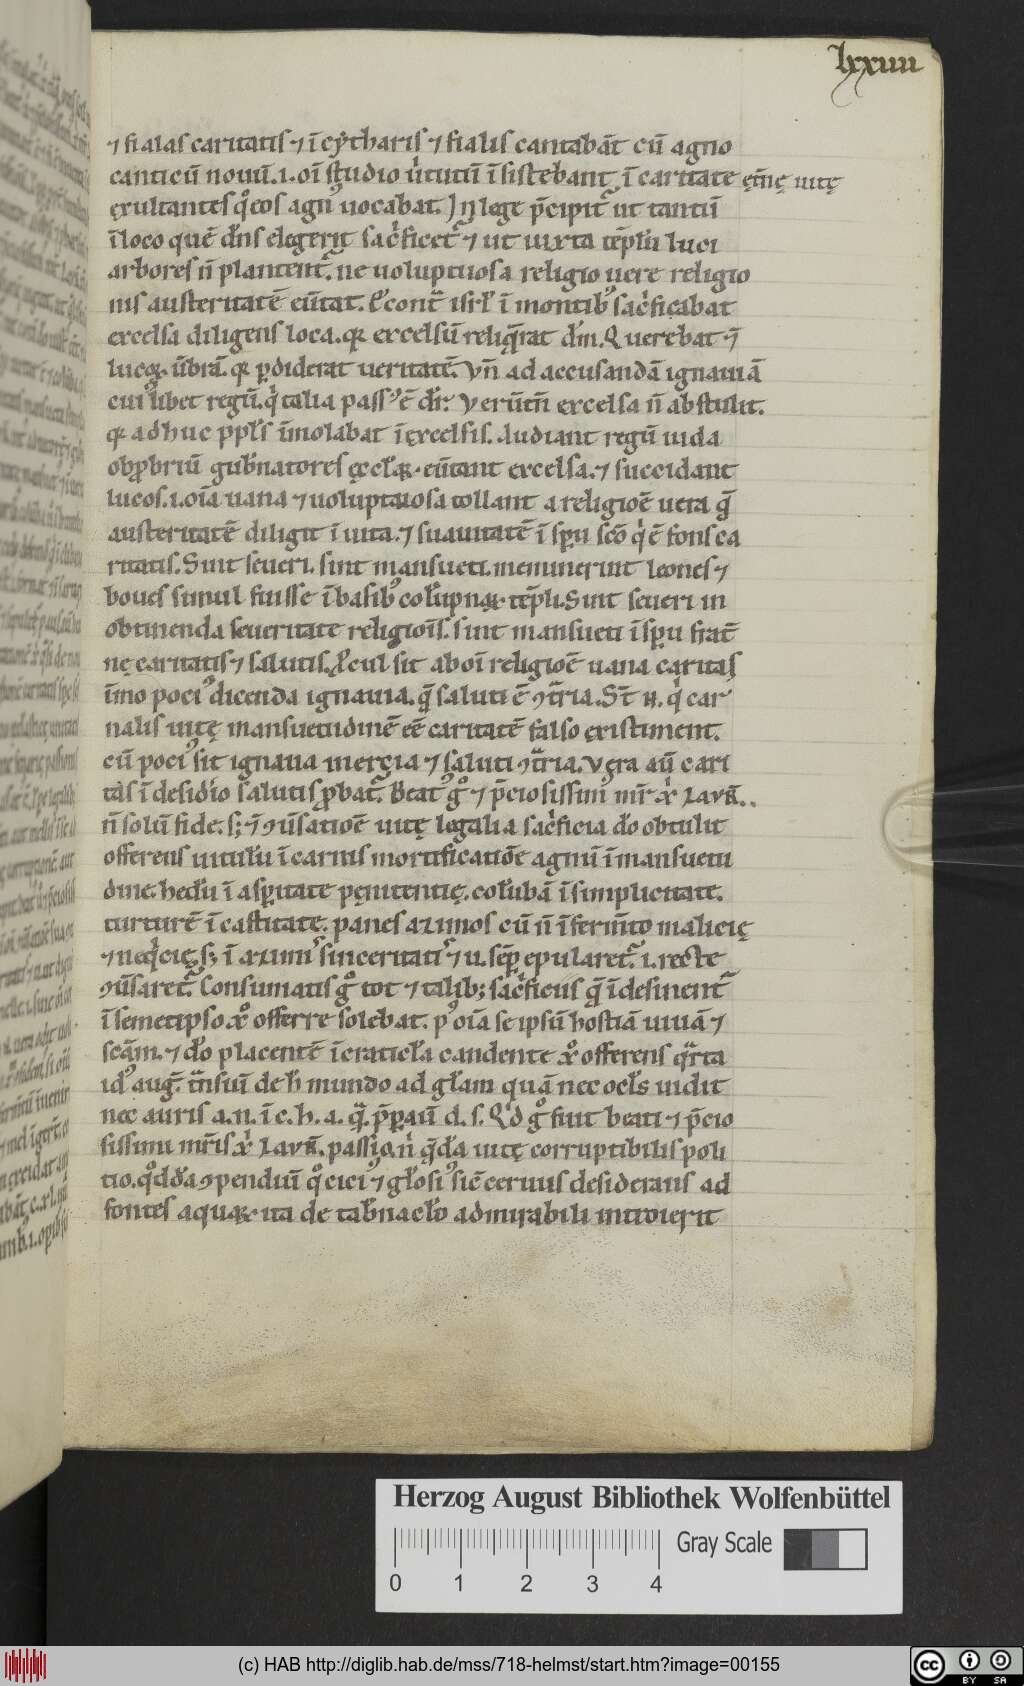 lxxiiii
⁊ fialas caritatis ⁊ ī cytharis ⁊ fialis cantabāt cū agno
canticū nouū. ı. oī studio ú̇tutū īsistebant ī caritate ęt̄nę uitę
exultantes q̊ eos agn᷒ uocabat. In lege p̄cipit᷑ ut tantū
ī loco quē dn̄s elegerit sac̍ficet᷑ ⁊ ut iuxta tēplū luci
arbores n̄ plantent᷑. ne uoluptuosa religio uere religio
nis austeritatē eu̅tat. Econt̄ isrl̄ ī montib᷒ sac̍ficabat
excelsa diligens loca. qꝛ excelsū reliq̄rat dm̄. Querebat ⁊
lucoꝝ ūbrā. qꝛ ꝑdiderat ueritatē. Vn̄ ad accusandā ignauiā
cui᷒libet regū. q̍ talia pass᷒ ē dr̄. Verūtn̄ excelsa n̄ abstulit.
qꝛ adhuc ppl̄s īmolabat ī excelsis. Audiant regū uida
obꝓbriū gub̄natores ęccl̄aꝝ. euītent excelsa. ⁊ succidant
lucos. ı. oīa uana ⁊ uoluptuosa tollant a religiōe uera q̄
austeritatē diligit ī uita. ⁊ suauitatē ī spū scō q̍ ē fons ca
ritatis. Sint seueri. sint mansueti. meminerint leones ⁊
boues simul fuisse ī basib᷒ colūpnaꝝ tēpli. Sint seueri in
obtinenda seueritate religiōis. sint mansueti ī spū frat̄
nę caritatis ⁊ salutis. Pcul sit ab oī religiōe uana caritas
īmo poci᷒ dicenda ignauia. q̄ saluti ē ꝯt̄ria. St̄ n̄. q̍ car
nalis uitę mansuetudinē ēē caritatē falso existiment.
cū poci᷒ sit ignaua inercia ⁊ saluti ꝯt̄ria. Vera aū cari
tas ī desidio salutis ꝓbat᷑. Beat᷒ g̊ ⁊ p̄ciosissim᷒ mr̄ xp̄i Laur̄..
n̄ solū fide. sꝫ ⁊ ī ꝯūsatiōe uitę legalia sac̍ficia dō obtulit
offerens uitulū ī carnis mortificatiōe agnū ī mansuetu
dine. hedū ī asꝑitate pęnitentię. colūbā ī simplicitate.
turturē ī castitate. panes azimos cū n̄ ī ferm̄to malicię
⁊ neq̍cię. sꝫ ī azimis sinceritatis ⁊ u. sēꝑ epularet᷑. ı. recte
ꝯūsaret᷑. Consumatis g̊ tot ⁊ talibꝫ sac̍ficiis q̄ īdesinent᷑
ī semetipso xp̊ offerre solebat. p᷒ oīa se ipsū hostiā uiuā ⁊
scām. ⁊ dō placentē ī craticl̄a candente xp̊ offerens q̄rta
id᷒ aug̅. t̄nsiuī de h̄ mundo ad gl̄am quā nec ocl̄s uidit
nec auris a. n. ī c. h. a. q̄. p̄paū d. s. Qd g̊ fuit beati ⁊ p̄cio
sissimi mr̄is xp̄i Laur̄. passio n̍ q̄dā uitę corruptibilis poli
tio. q̊ddā ꝯpendiū q̊ cici᷒ ⁊ gl̄osi᷒ sic̄ ceruus desiderans ad
fontes aquaꝝ ita de tab̄nacl̄o admirabili introierit
Herzog August Bibliothek Wolfenbüttel
Gray Scale
0 1 2 3 4
(c) HAB http://diglib.hab.de/mss/718-helmst/start.htm?image=00155
cc BY SA